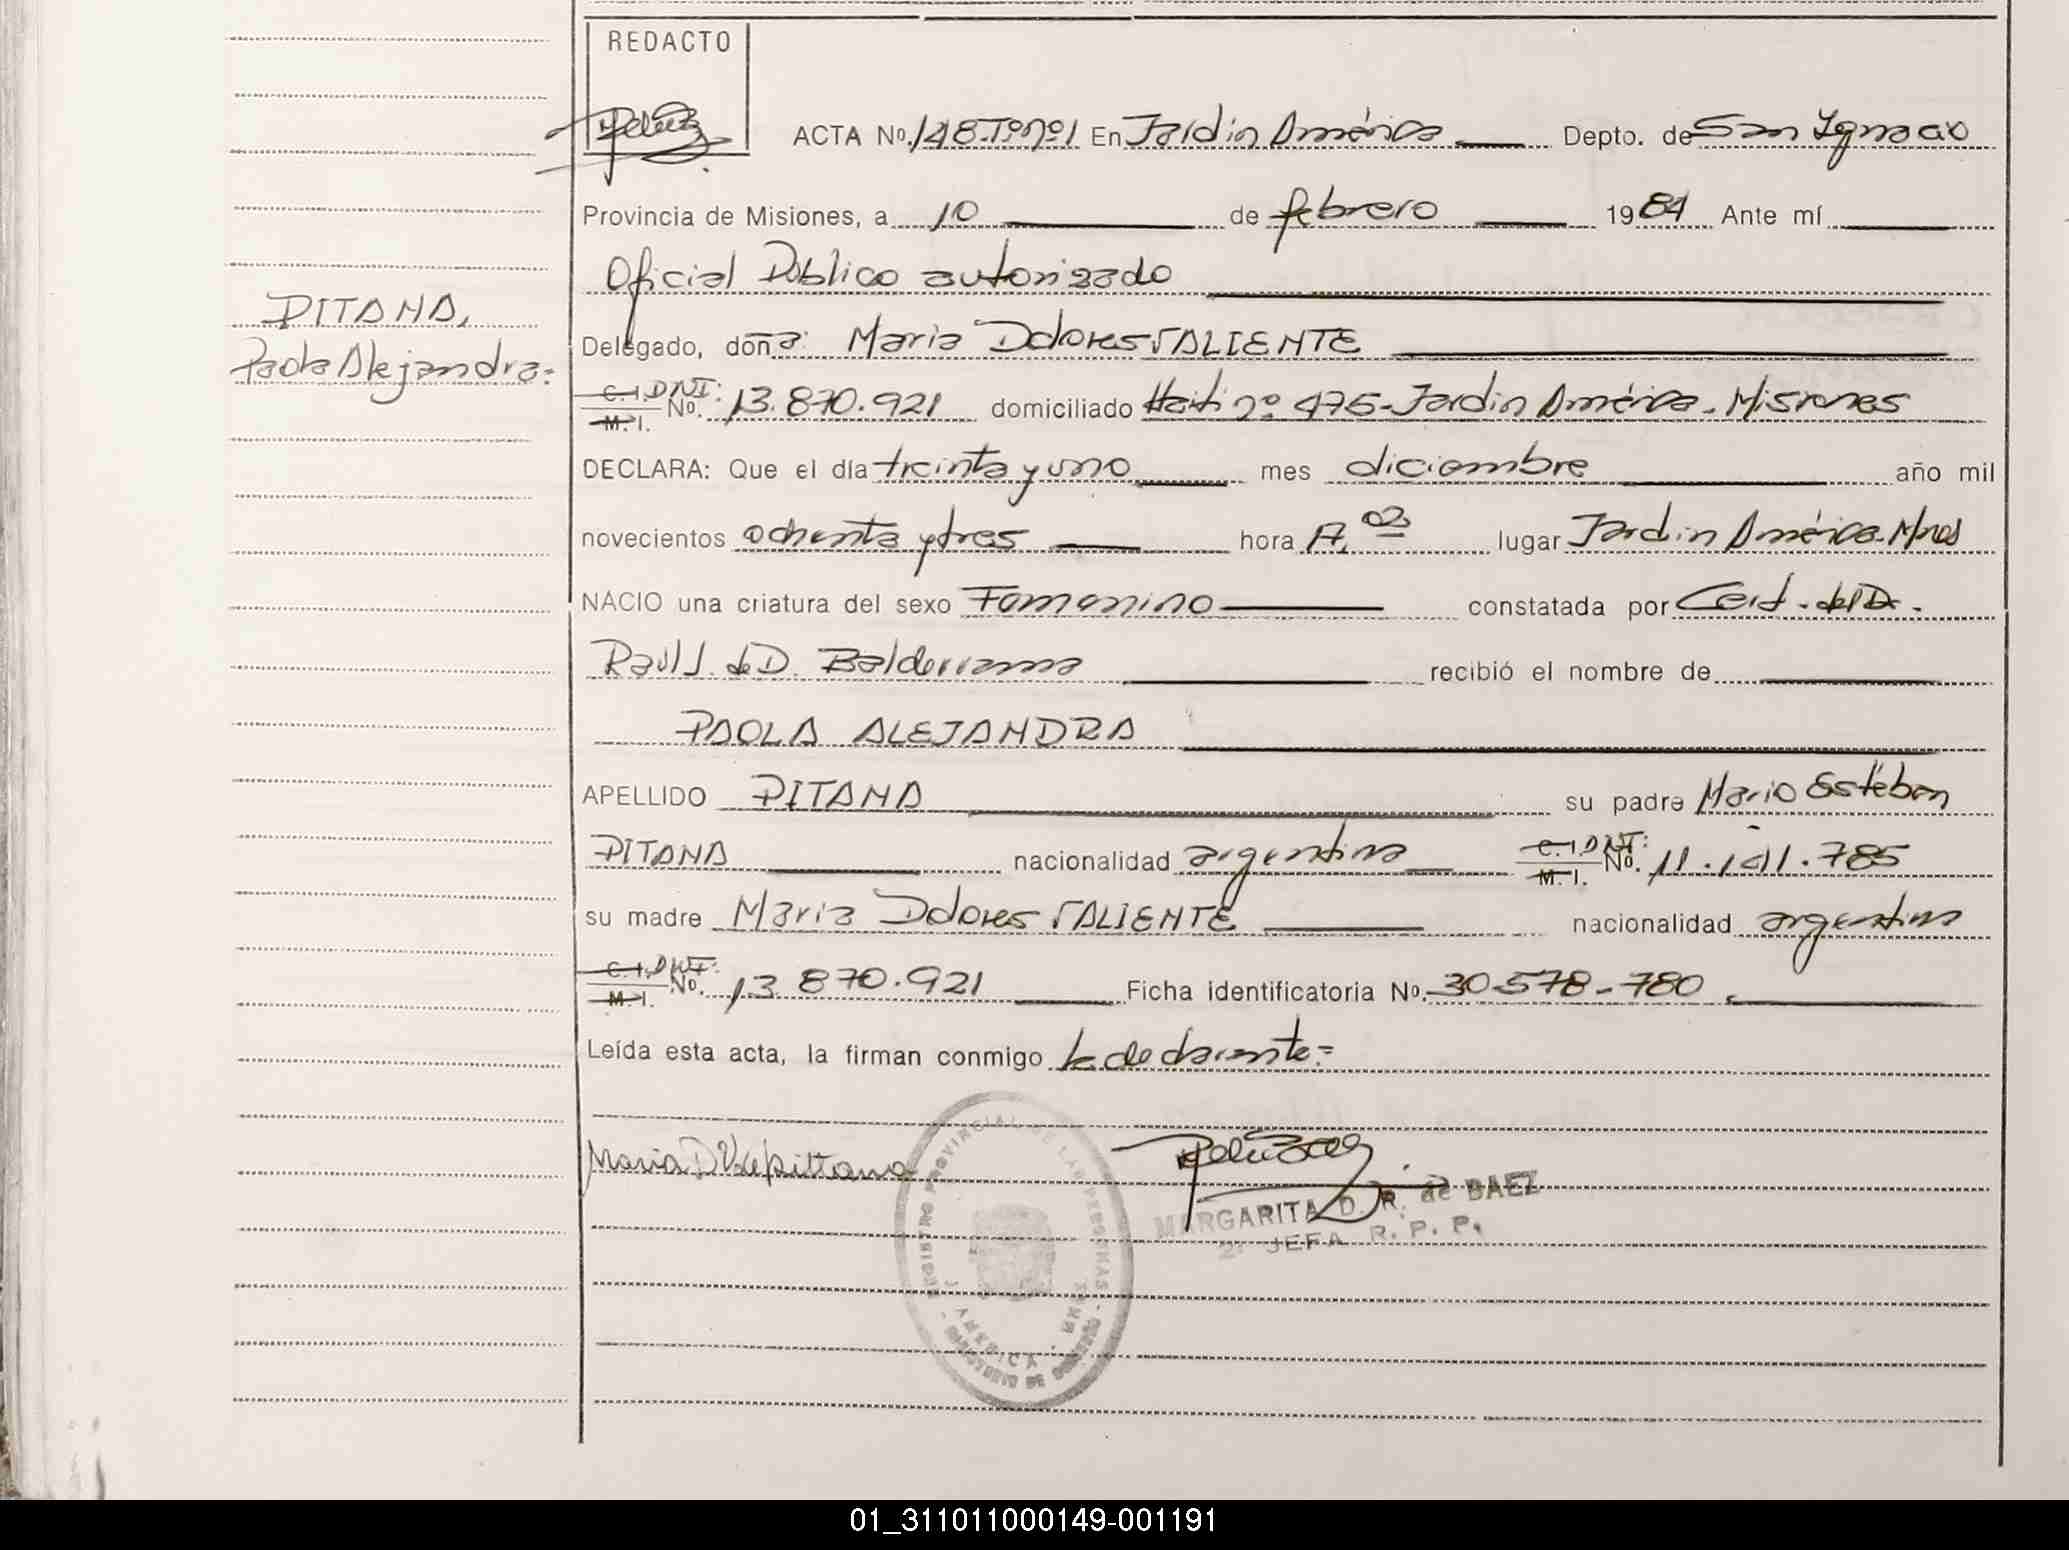 REDACTO
ACTA Nº. 148-Tº nº1 En Jardín América Depto. de San Ignacio
Provincia de Misiones, a 10 de febrero 1984 Ante mí
Oficial Público autorizado
PITANA,
Delegado, doña: Maria Dolores VALIENTE
Paola Alejandra=
C. I. DNI: M. I. Nº. 13.870.921 domiciliado Haití nº 475-Jardín América-Misiones
DECLARA: Que el día treinta y uno mes diciembre año mil
novecientos ochenta y tres hora lugar Jardín América-Mnes
NACIO una criatura del sexo Femenino constatada por Cert. del Dr.
Raúl J. de D. Balderrama recibió el nombre de
PAOLA ALEJANDRA
APELLIDO PITANA su padre Mario Esteban
PITANA nacionalidad argentina C. I. DNI: M. I. Nº. 11.141.785
su madre Maria Dolores VALIENTE nacionalidad argentina
C. I. DNI: M. I. Nº. 13.870.921 Ficha identificatoria Nº. 30-578-780
Leída esta acta, la firman conmigo la declarante=
Maria D V de Pittana
REGISTRO PROVINCIAL DE LAS PERSONAS
J. AMERICA - MNES
MINISTERIO DE GOBIERNO
MARGARITA D. R. de BAEZ
2ª JEFA R. P. P.
01_311011000149-001191